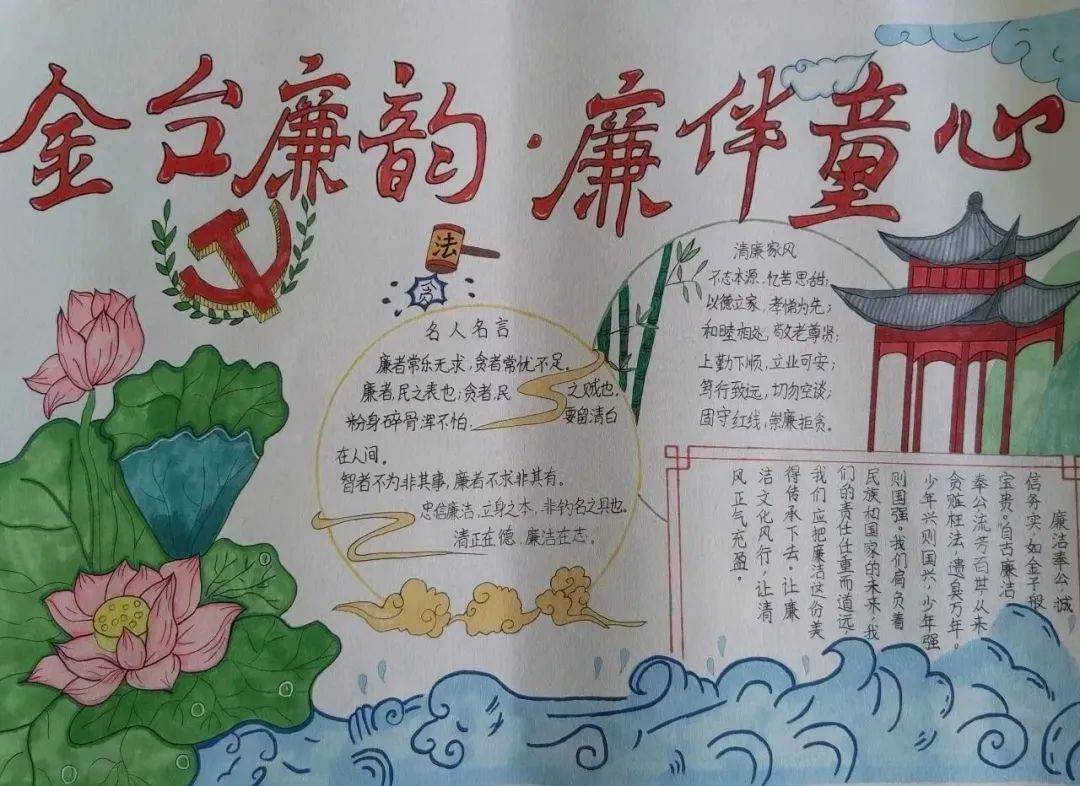 金台廉韵·廉伴童心
法
贪
名人名言
廉者常乐无求，贪者常忧不足。
廉者，民之表也；贪者，民之贼也。
粉身碎骨浑不怕，要留清白
在人间。
智者不为非其事，廉者不求非其有。
忠信廉洁，立身之本，非钓名之具也。
清正在德，廉洁在志。
清廉家风
不忘本源，忆苦思甜；
以德立家，孝悌为先；
和睦相处，敬老尊贤；
上勤下顺，立业可安；
笃行致远，切勿空谈；
固守红线，崇廉拒贪。
廉洁奉公，诚
信务实，如金子般
宝贵。自古廉洁
奉公流芳百世，从来
贪赃枉法，遗臭万年。
少年兴则国兴，少年强
则国强。我们肩负着
民族和国家的未来，我
们的责任任重而道远，
我们应把廉洁这份美
得传承下去。让廉
洁文化风行，让清
风正气充盈。